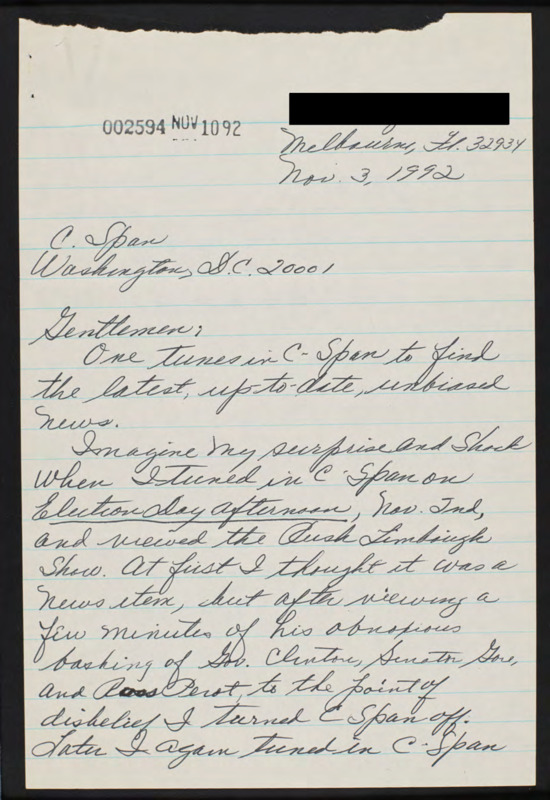 002594 NOV 10 92
Melbourne, Fl. 32934
Nov. 3, 1992
C. Span
Washington, D.C. 20001
Gentlemen:
One tunes in C-Span to find
the latest, up-to-date, unbiased
news.
Imagine my surprise and shock
when I tuned in C-Span on
Election Day afternoon, Nov. 2nd,
and viewed the Rush Limbaugh
Show. At first I thought it was a
news item, but after viewing a
few minutes of his obnoxious
bashing of Gov. Clinton, Senator Gore,
and Ross Perot, to the point of
disbelief I turned C Span off.
Later I again tuned in C-Span